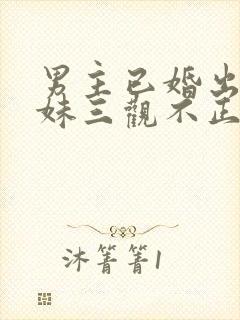 男主已婚出
妹三觀不正
沐箐箐1